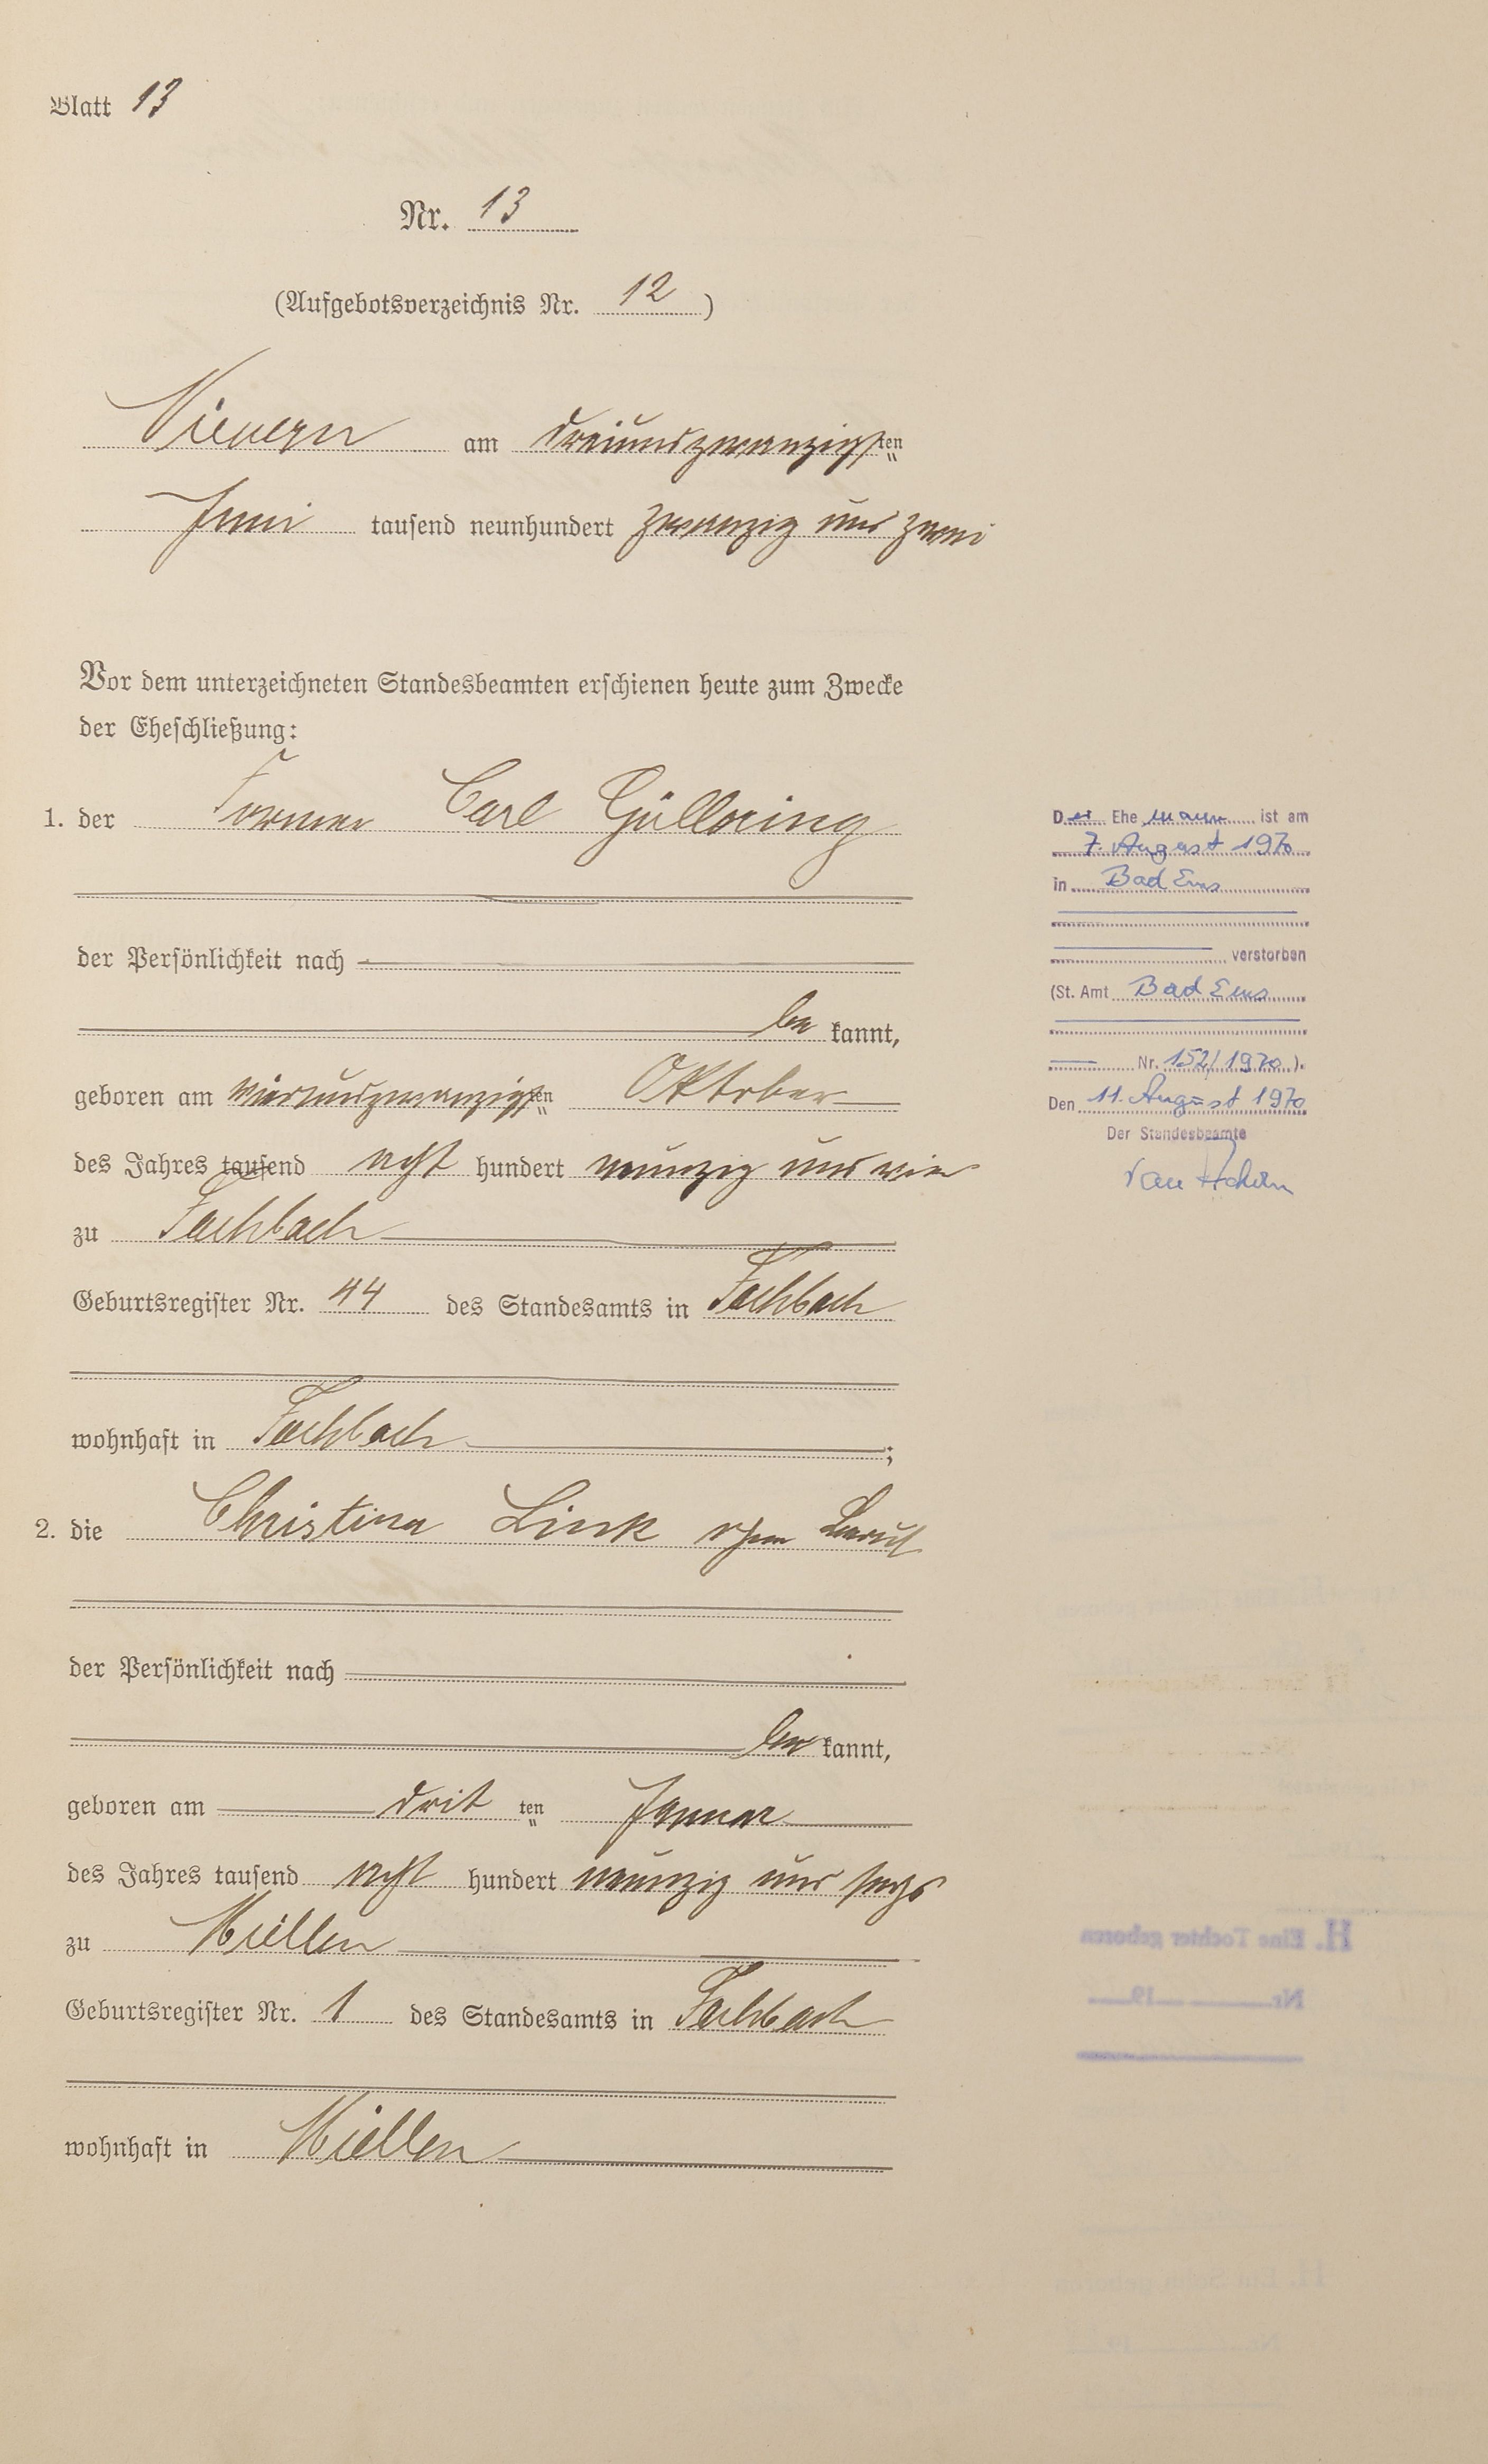 Blatt 13
Nr. 13
(Aufgebotsverzeichnis Nr. 12)
Nievern am dreiundzwanzigsten
Juni tausend neunhundert zwanzig und zwei
Vor dem unterzeichneten Standesbeamten erschienen heute zum Zwecke
der Eheschließung:
1. der Former Carl Güllering
der Persönlichkeit nach
be kannt,
geboren am vierundzwanzigsten Oktober
des Jahres tausend acht hundert neunzig und vier
zu Fachbach
Geburtsregister Nr. 44 des Standesamts in Fachbach
wohnhaft in Fachbach;
2. die Christina Link ohne Beruf
der Persönlichkeit nach
be kannt,
geboren am drit ten Januar
des Jahres tausend acht hundert neunzig und sechs
zu Miellen
Geburtsregister Nr. 1 des Standesamts in Fachbach
wohnhaft in Miellen
Der Ehemann ist am
7. August 1970
in Bad Ems
verstorben
(St. Amt Bad Ems
Nr. 152/1970).
Den 11. August 1970
Der Standesbeamte
H. Eine Tochter geboren
Nr. 19